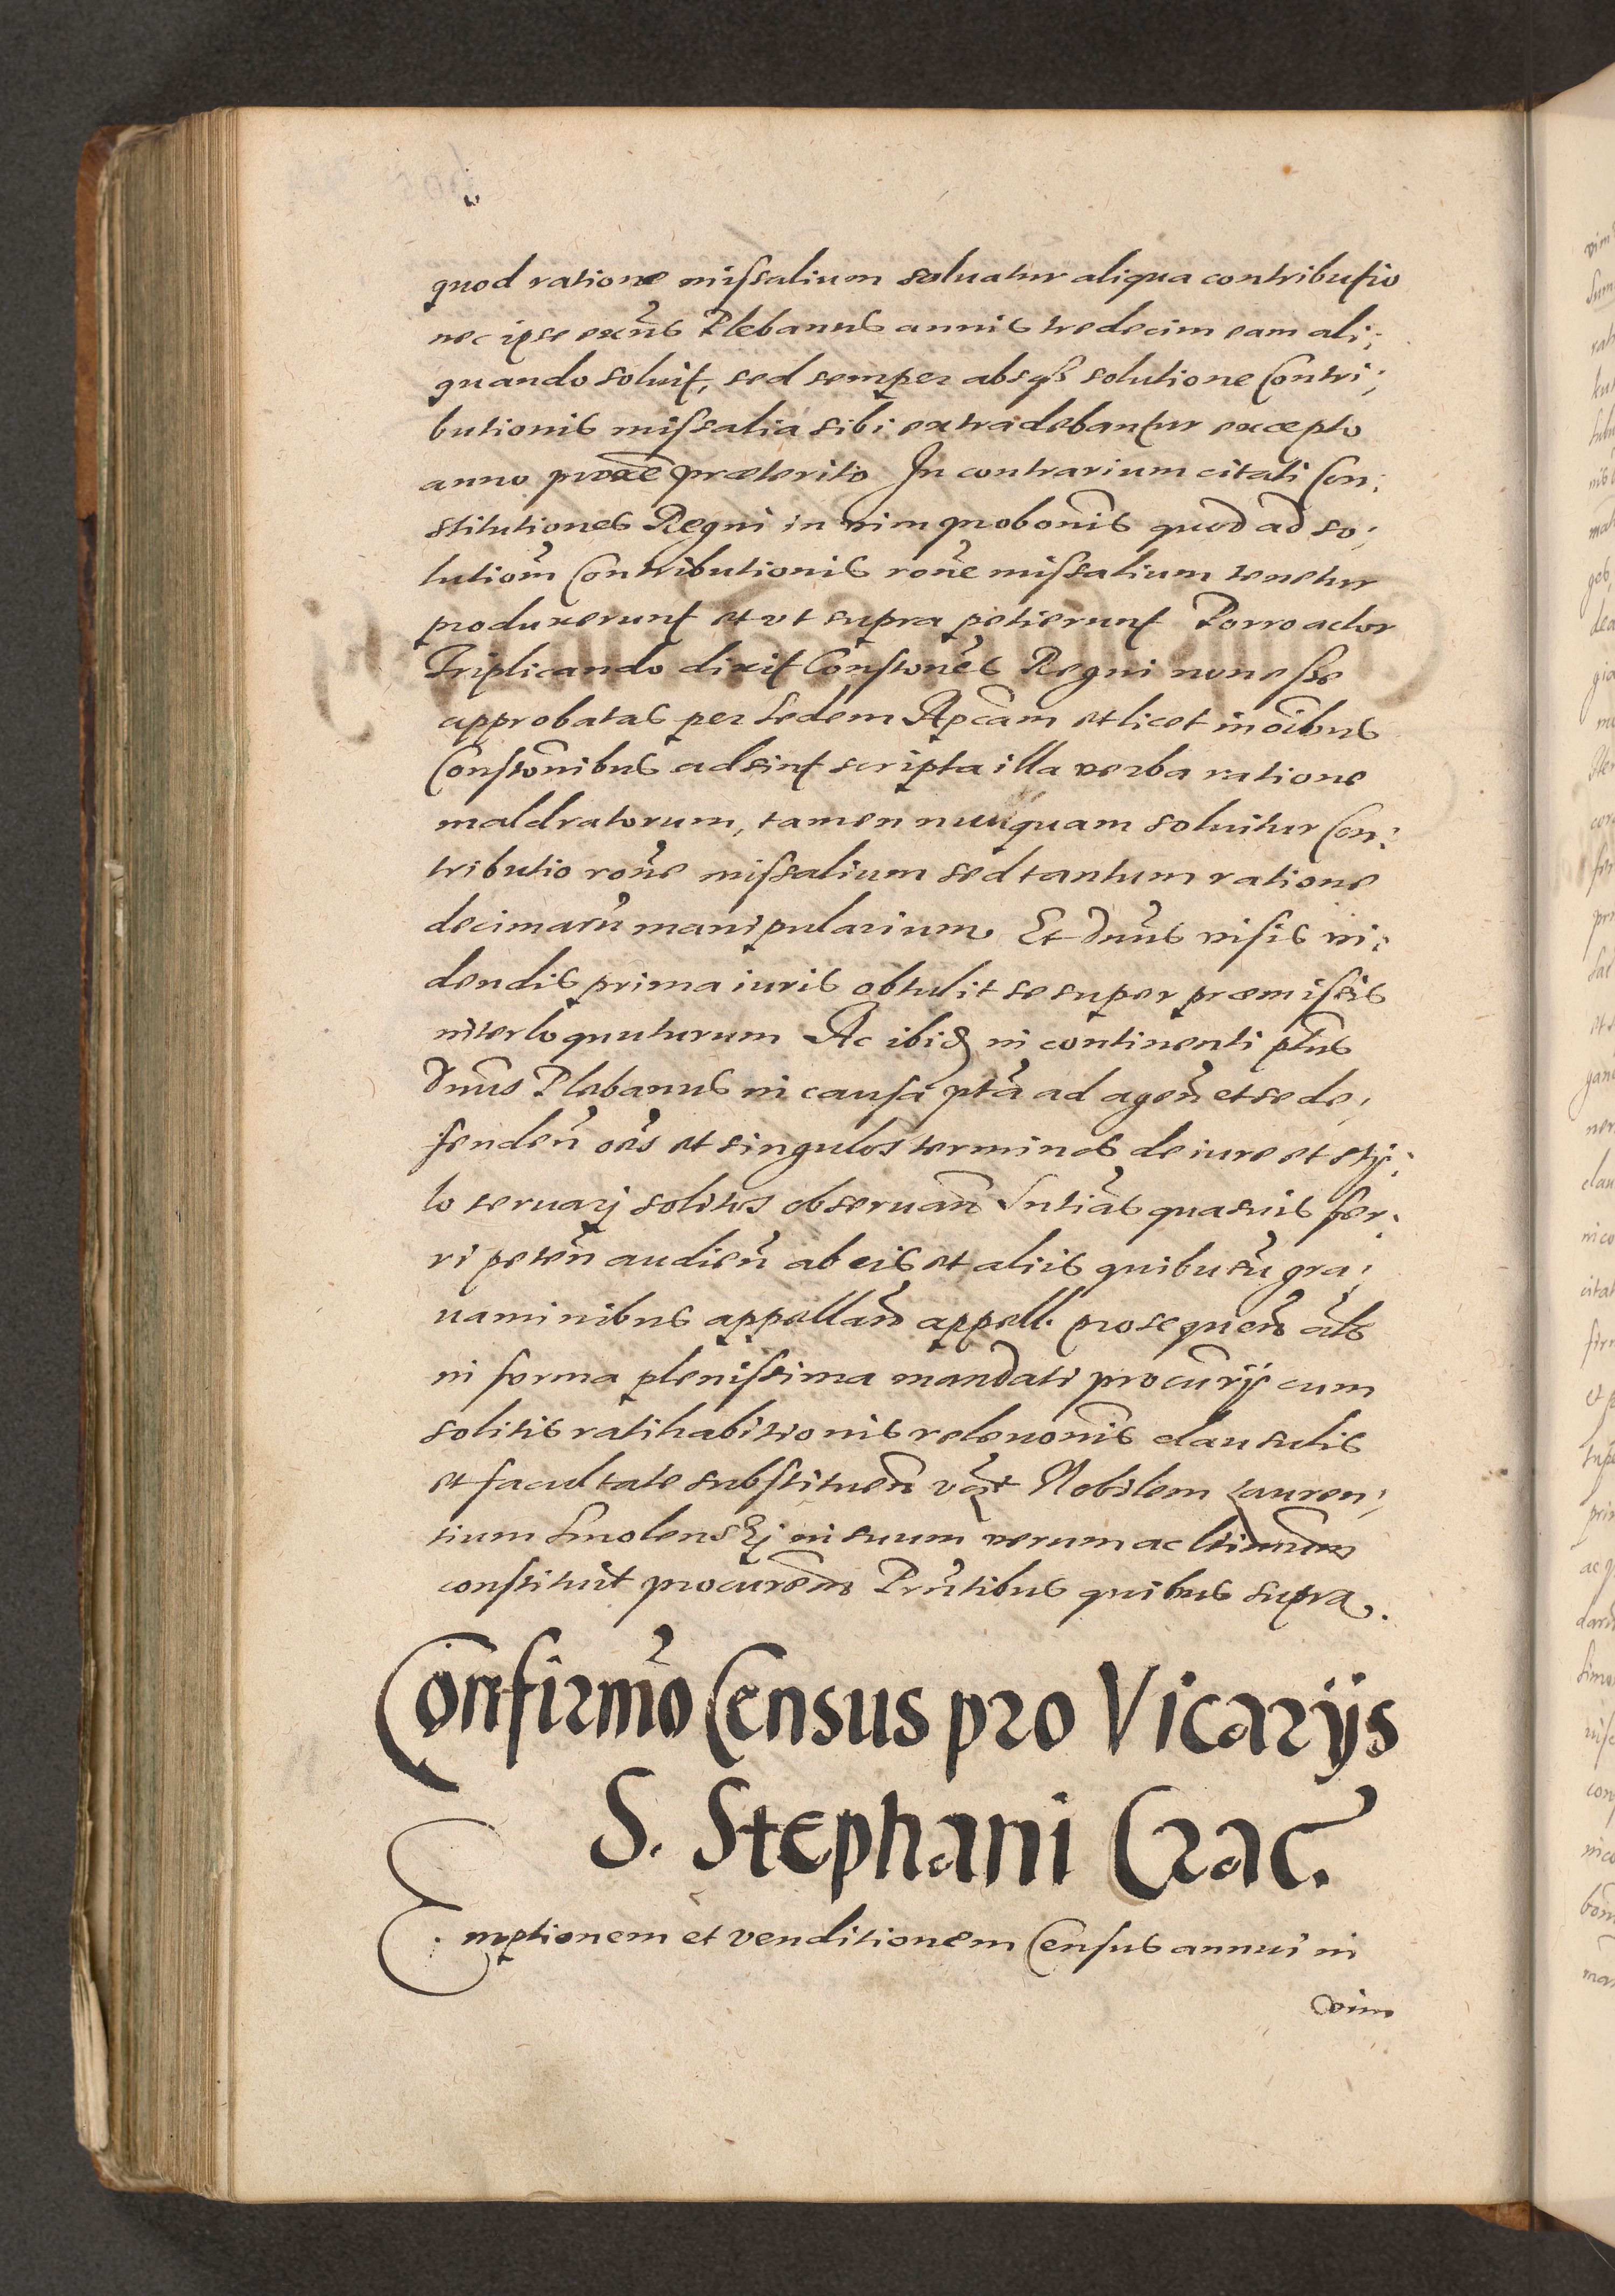 quod ratione missalium soluatur aliqua contributio
nec ipse exñs Plebanus annis tredecim eam ali;
quando soluit, sed semper absqʒ solutione Contri;
butionis missalia sibi extradebantur excepto
anno proxe præterito In contrarium citati Con;
stitutiones Regni in vim probonis quod ad so;
lutiom Contributionis rone missalium tenetur
produxerunt et vt supra petierunt Porro actor
Triplicando dixit Constones Regni non esse
approbatas per Sedem Apcam et licet in oibus
Constonibus adsint scripta illa verba ratione
maldratorum, tamen nunquam soluitur Con;
tributio rone missalium sed tantum ratione
decimaru manipularium. Et Dnus visis vi;
dendis prima iuris obtulit se super præmissis
interloquuturum Ac ibid in continenti ptus
Dnus Plebanus in causa pta ad agen et se de;
fenden oes et singulos terminos de iure et sty;
lo seruarj solitos obseruan Sntias quasuis fer;
ri peten audien ab eis et aliis quibusu gra;
uaminibus appellan appell. prosequen als
in forma plenissima mandati procurij cum
solitis ratihabitionis releuonis clausulis
et facultate substituen vat Nobilem Lauren;
tium Smolenskj in suum verum ac ltimum
constituit procurem Prntibus quibus supra.
Confirmo Census pro Vicarijs
S. Stephani Crac.
Emptionem et venditionem Census annui in
vim